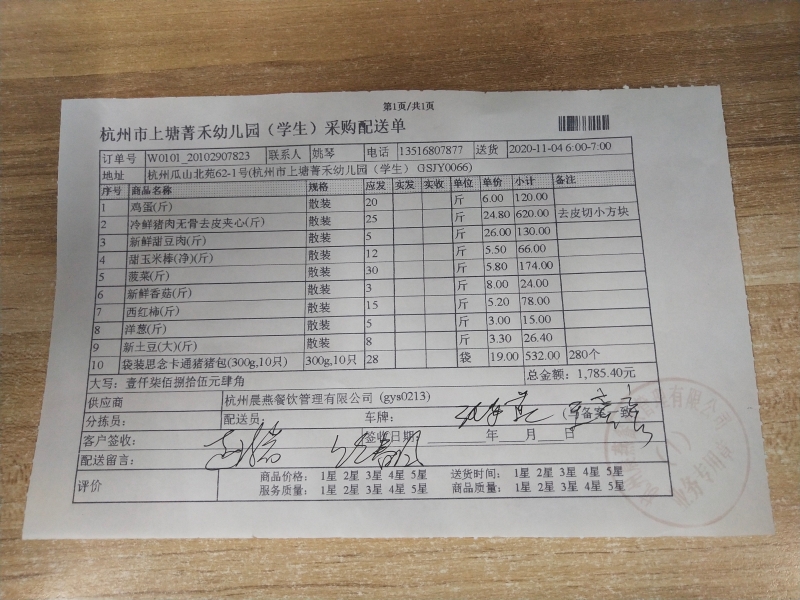 第1页/共1页
杭州市上塘菁禾幼儿园（学生）采购配送单
订单号 W0101_20102907823 联系人 姚琴 电话 13516807877 送货 2020-11-04 6:00-7:00
地址 杭州瓜山北苑62-1号(杭州市上塘菁禾幼儿园（学生）(JSJY0066)
序号 商品名称 规格 应发 实发 实收 单位 单价 小计 备注
1 鸡蛋(斤) 散装 20 斤 6.00 120.00
2 冷鲜猪肉无骨去皮夹心(斤) 散装 25 斤 24.80 620.00 去皮切小方块
3 新鲜甜豆肉(斤) 散装 5 斤 26.00 130.00
4 甜玉米棒(净)(斤) 散装 12 斤 5.50 66.00
5 菠菜(斤) 散装 30 斤 5.80 174.00
6 新鲜香菇(斤) 散装 3 斤 8.00 24.00
7 西红柿(斤) 散装 15 斤 5.20 78.00
8 洋葱(斤) 散装 5 斤 3.00 15.00
9 新土豆(大)(斤) 散装 8 斤 3.30 26.40
10 袋装思念卡通猪猪包(300g,10只) 300g,10只 28 袋 19.00 532.00 280个
大写：壹仟柒佰捌拾伍元肆角 总金额：1,785.40元
供应商 杭州晨燕餐饮管理有限公司 (gys0213)
分拣员： 配送员： 车牌：
客户签收： 签收日期： 年 月 日
配送留言：
评价 商品价格： 1星 2星 3星 4星 5星 送货时间： 1星 2星 3星 4星 5星
服务质量： 1星 2星 3星 4星 5星 商品质量： 1星 2星 3星 4星 5星